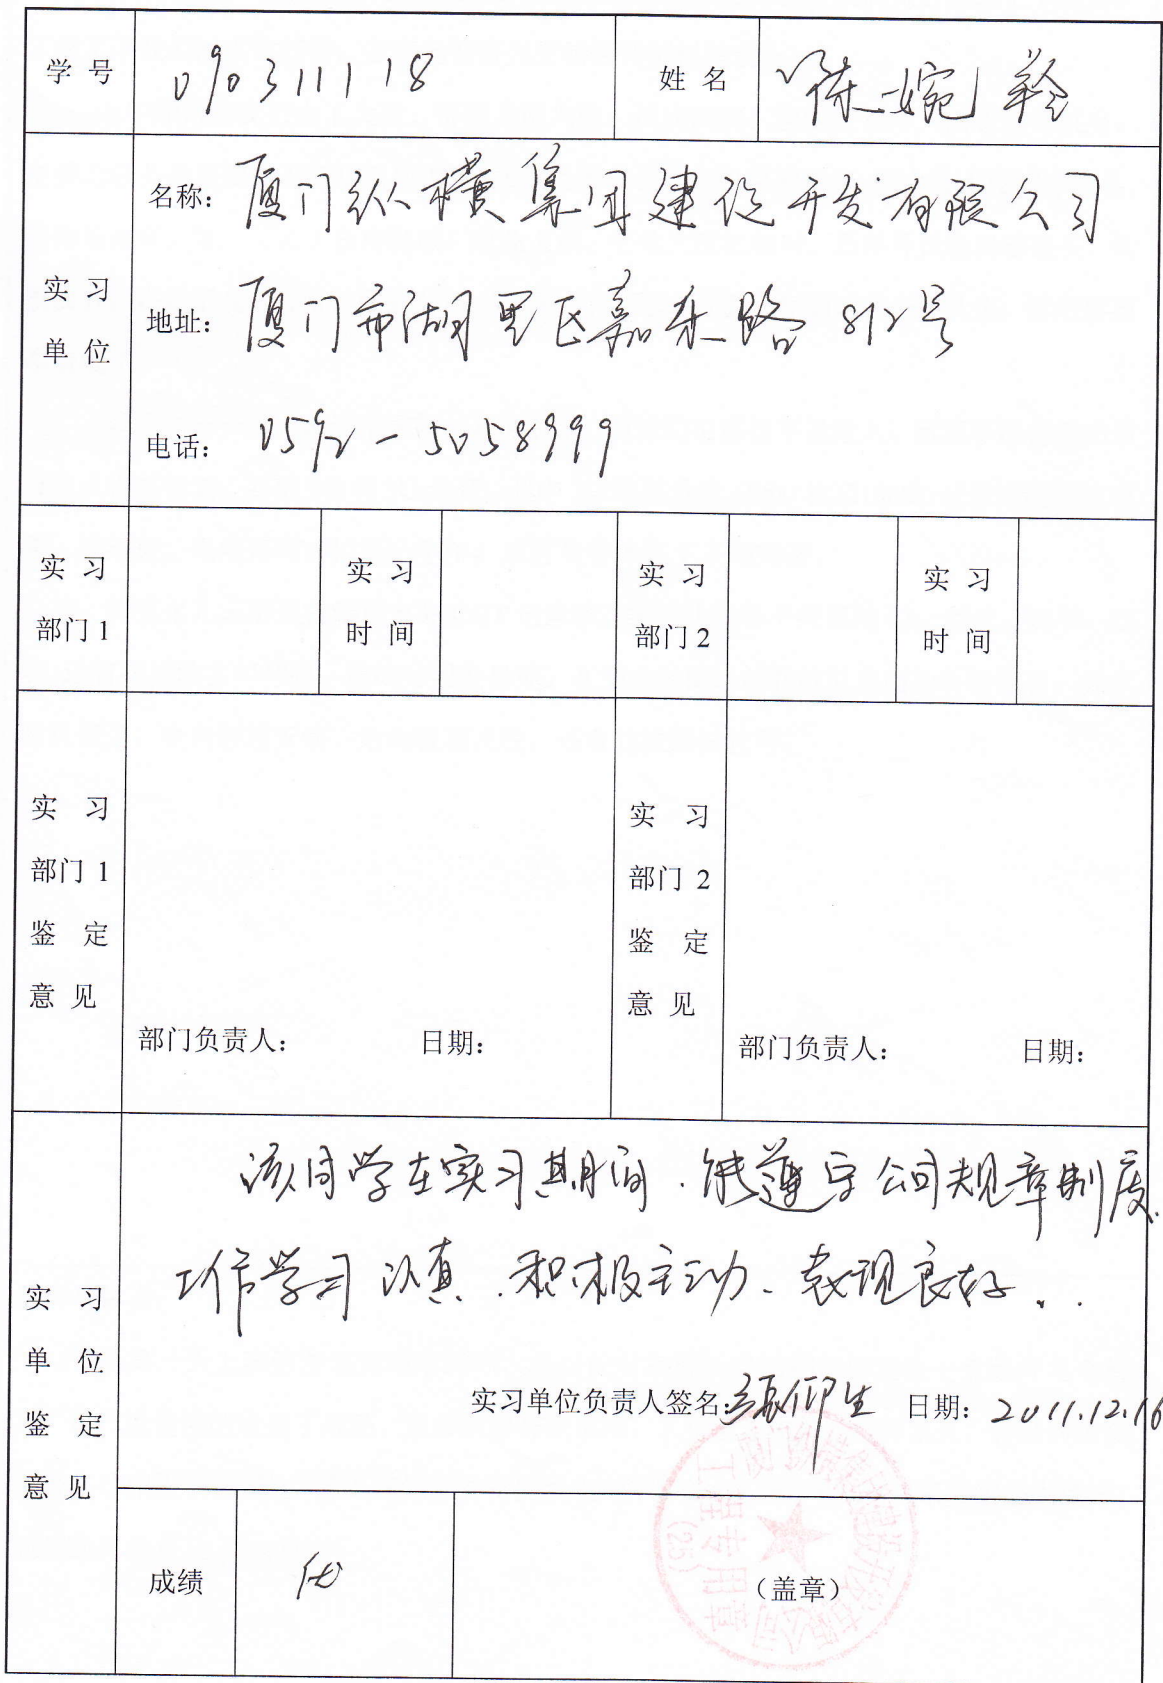 学号 090311118 姓名 陈婉羚
实习单位
名称: 厦门纵横集团建设开发有限公司
地址: 厦门市湖里区嘉禾路812号
电话: 0592-5058999
实习部门1 实习时间 实习部门2 实习时间
实习部门1鉴定意见
部门负责人: 日期:
实习部门2鉴定意见
部门负责人: 日期:
实习单位鉴定意见
该同学在实习期间、能遵守公司规章制度、
工作学习认真、积极主动、表现良好。
实习单位负责人签名: 张仰生 日期: 2011.12.16
成绩 优 (盖章)
厦门纵横集团建设开发有限公司
工程专用章
(25)